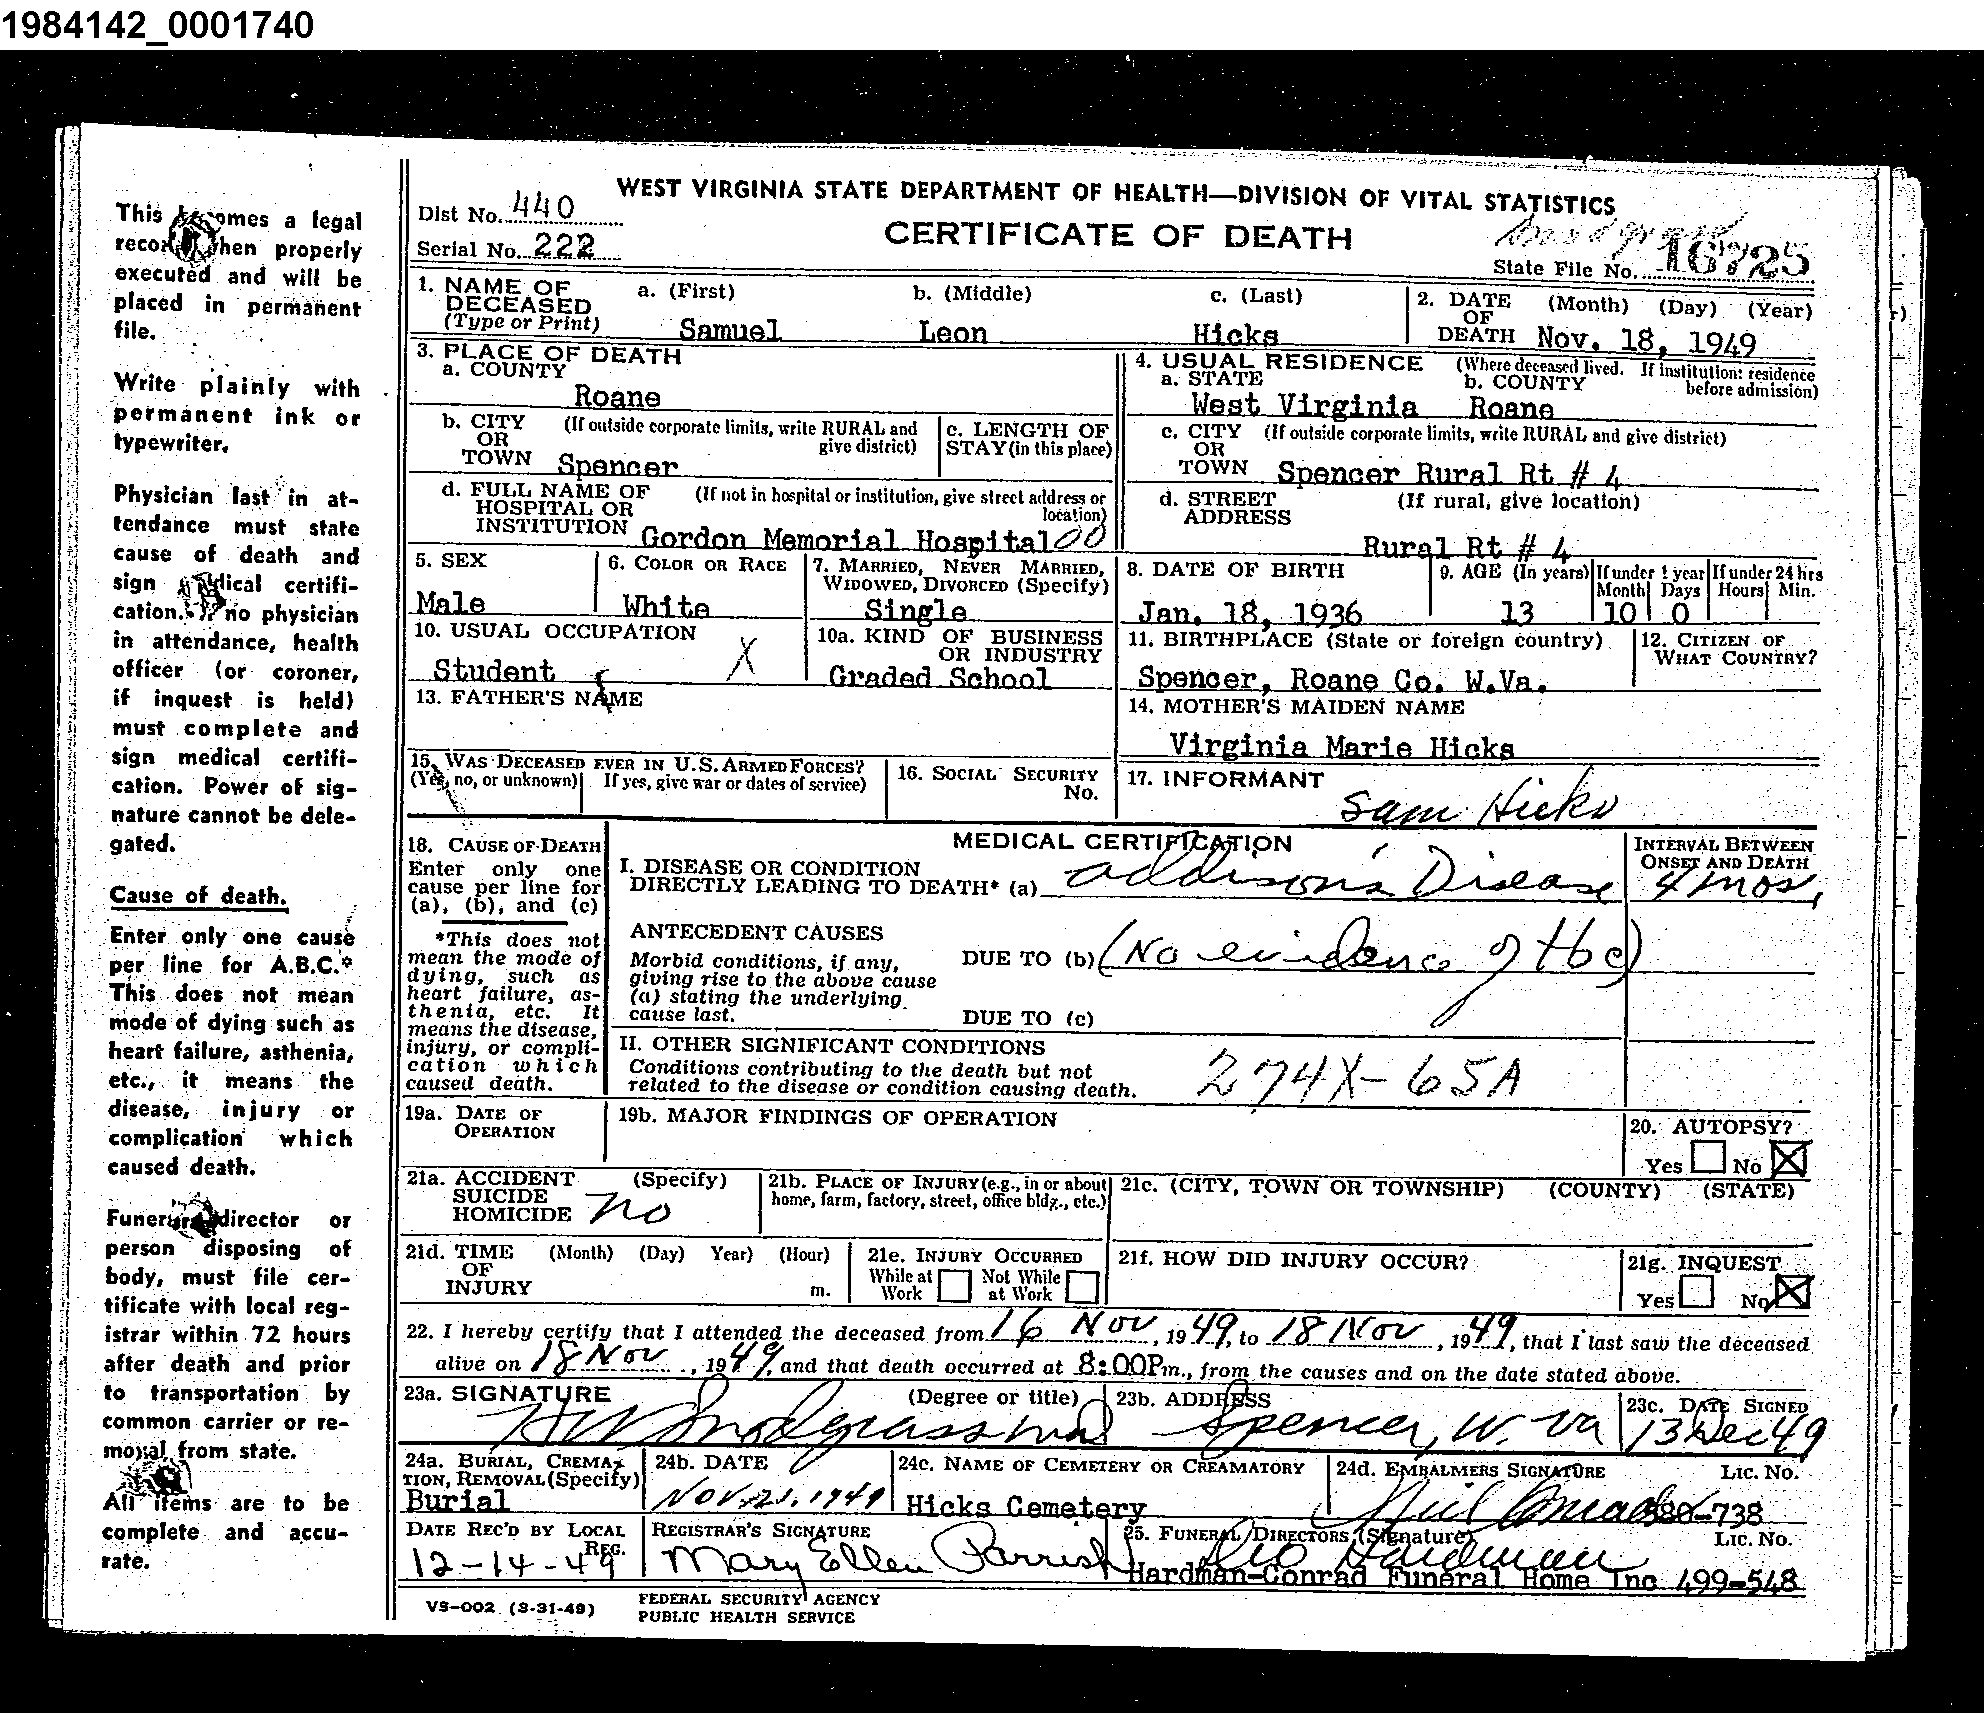 1984142_0001740
This becomes a legal
record when properly
executed and will be
placed in permanent
file.
Write plainly with
permanent ink or
typewriter.
Physician last in at-
tendance must state
cause of death and
sign medical certifi-
cation. If no physician
in attendance, health
officer (or coroner,
if inquest is held)
must complete and
sign medical certifi-
cation. Power of sig-
nature cannot be dele-
gated.
Cause of death.
Enter only one cause
per line for A.B.C.*
This does not mean
mode of dying such as
heart failure, asthenia,
etc., it means the
disease, injury or
complication which
caused death.
Funeral director or
person disposing of
body, must file cer-
tificate with local reg-
istrar within 72 hours
after death and prior
to transportation by
common carrier or re-
moval from state.
All items are to be
complete and accu-
rate.
WEST VIRGINIA STATE DEPARTMENT OF HEALTH—DIVISION OF VITAL STATISTICS
Dist No. 440
CERTIFICATE OF DEATH
Snodgrass
Serial No. 222
State File No. 16725
1. NAME OF DECEASED (Type or Print)
a. (First) b. (Middle) c. (Last)
Samuel Leon Hicks
2. DATE OF DEATH (Month) (Day) (Year)
Nov. 18, 1949
3. PLACE OF DEATH
a. COUNTY
Roane
4. USUAL RESIDENCE (Where deceased lived. If institution: residence before admission)
a. STATE b. COUNTY
West Virginia Roane
b. CITY OR TOWN (If outside corporate limits, write RURAL and give district)
Spencer
c. LENGTH OF STAY (in this place)
c. CITY OR TOWN (If outside corporate limits, write RURAL and give district)
Spencer Rural Rt # 4
d. FULL NAME OF HOSPITAL OR INSTITUTION (If not in hospital or institution, give street address or location)
Gordon Memorial Hospital 00
d. STREET ADDRESS (If rural, give location)
Rural Rt # 4
5. SEX
Male
6. COLOR OR RACE
White
7. MARRIED, NEVER MARRIED, WIDOWED, DIVORCED (Specify)
Single
8. DATE OF BIRTH
Jan. 18, 1936
9. AGE (In years)
13
If under 1 year
Month Days
10 0
If under 24 hrs
Hours Min.
10. USUAL OCCUPATION
Student X
10a. KIND OF BUSINESS OR INDUSTRY
Graded School
11. BIRTHPLACE (State or foreign country)
Spencer, Roane Co. W.Va.
12. CITIZEN OF WHAT COUNTRY?
13. FATHER'S NAME
14. MOTHER'S MAIDEN NAME
Virginia Marie Hicks
15. WAS DECEASED EVER IN U.S. ARMED FORCES?
(Yes, no, or unknown) If yes, give war or dates of service)
16. SOCIAL SECURITY No.
17. INFORMANT
Sam Hicks
18. CAUSE OF DEATH
Enter only one
cause per line for
(a), (b), and (c)
*This does not
mean the mode of
dying, such as
heart failure, as-
thenia, etc. It
means the disease,
injury, or compli-
cation which
caused death.
MEDICAL CERTIFICATION
I. DISEASE OR CONDITION
DIRECTLY LEADING TO DEATH* (a) Addison's Disease
INTERVAL BETWEEN ONSET AND DEATH
4 mos.
ANTECEDENT CAUSES
Morbid conditions, if any,
giving rise to the above cause
(a) stating the underlying
cause last.
DUE TO (b) (No evidence of tbc)
DUE TO (c)
II. OTHER SIGNIFICANT CONDITIONS
Conditions contributing to the death but not
related to the disease or condition causing death.
274X-65A
19a. DATE OF OPERATION
19b. MAJOR FINDINGS OF OPERATION
20. AUTOPSY?
Yes No
21a. ACCIDENT SUICIDE HOMICIDE (Specify)
no
21b. PLACE OF INJURY (e.g., in or about
home, farm, factory, street, office bldg., etc.)
21c. (CITY, TOWN OR TOWNSHIP) (COUNTY) (STATE)
21d. TIME OF INJURY (Month) (Day) Year) (Hour) m.
21e. INJURY OCCURRED
While at Work Not While at Work
21f. HOW DID INJURY OCCUR?
21g. INQUEST
Yes No
22. I hereby certify that I attended the deceased from 16 Nov, 1949, to 18 Nov, 1949, that I last saw the deceased
alive on 18 Nov, 1949, and that death occurred at 8:00Pm., from the causes and on the date stated above.
23a. SIGNATURE (Degree or title)
HW Snodgrass md
23b. ADDRESS
Spencer, W. Va
23c. DATE SIGNED
13 Dec 49
24a. BURIAL, CREMA-
TION, REMOVAL (Specify)
Burial
24b. DATE
Nov. 21, 1949
24c. NAME OF CEMETERY OR CREAMATORY
Hicks Cemetery
24d. EMBALMERS SIGNATURE Lic. No.
-738
DATE REC'D BY LOCAL REG.
12-14-49
REGISTRAR'S SIGNATURE
Mary Ellen Parrish
25. FUNERAL DIRECTORS (Signature) Lic. No.
Hardman
Hardman-Conrad Funeral Home Inc 499-548
VS-002 (3-31-49)
FEDERAL SECURITY AGENCY
PUBLIC HEALTH SERVICE